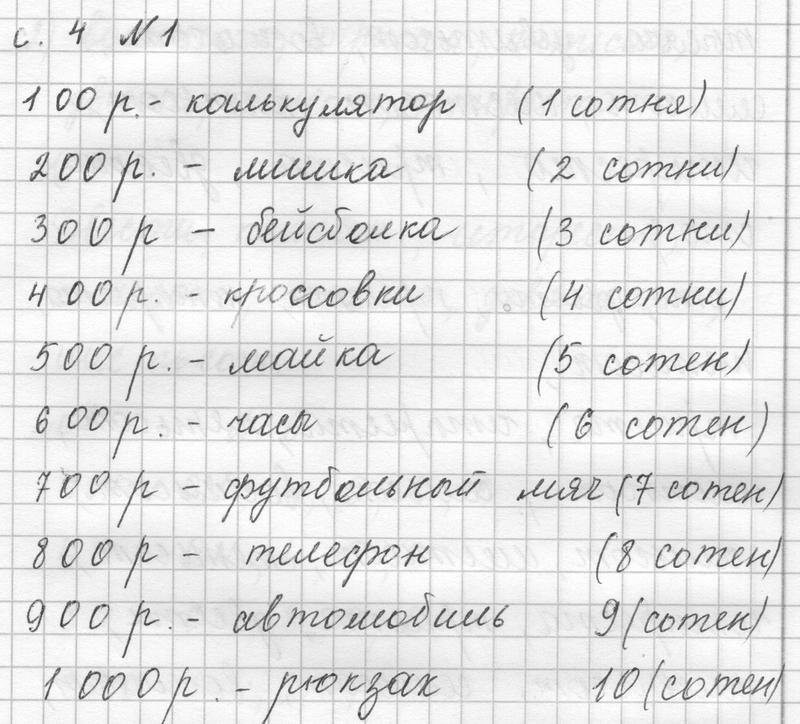 с. 4 №1
100 р. - калькулятор (1 сотня)
200 р. - мишка (2 сотни)
300 р - бейсболка (3 сотни)
400 р. - кроссовки (4 сотни)
500 р. - майка (5 сотен)
600 р. - часы (6 сотен)
700 р - футбольный мяч (7 сотен)
800 р - телефон (8 сотен)
900 р. - автомобиль 9 (сотен)
1000 р. - рюкзак 10 (сотен)